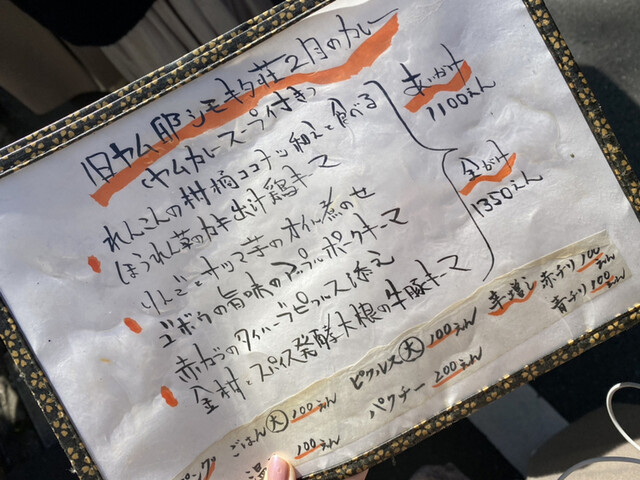 旧ヤム邸シモキタ荘2月のカレー
(ヤムカレースープ付き)
あいがけ
1100えん
れんこんの柑橘ココナッツ和えと食べる
ほうれん草カキ出汁鶏キーマ
全がけ
1350えん
りんごとサツマ芋のオイル煮のせ
ゴボウの旨味のアップルポークキーマ
赤かぶのタイハーブピクルス添え
金柑とスパイス発酵大根の牛豚キーマ
ごはん大 200えん
ピクルス大 100えん
パクチー 200えん
辛増し 赤チリ 100えん
青チリ 100えん
100えん